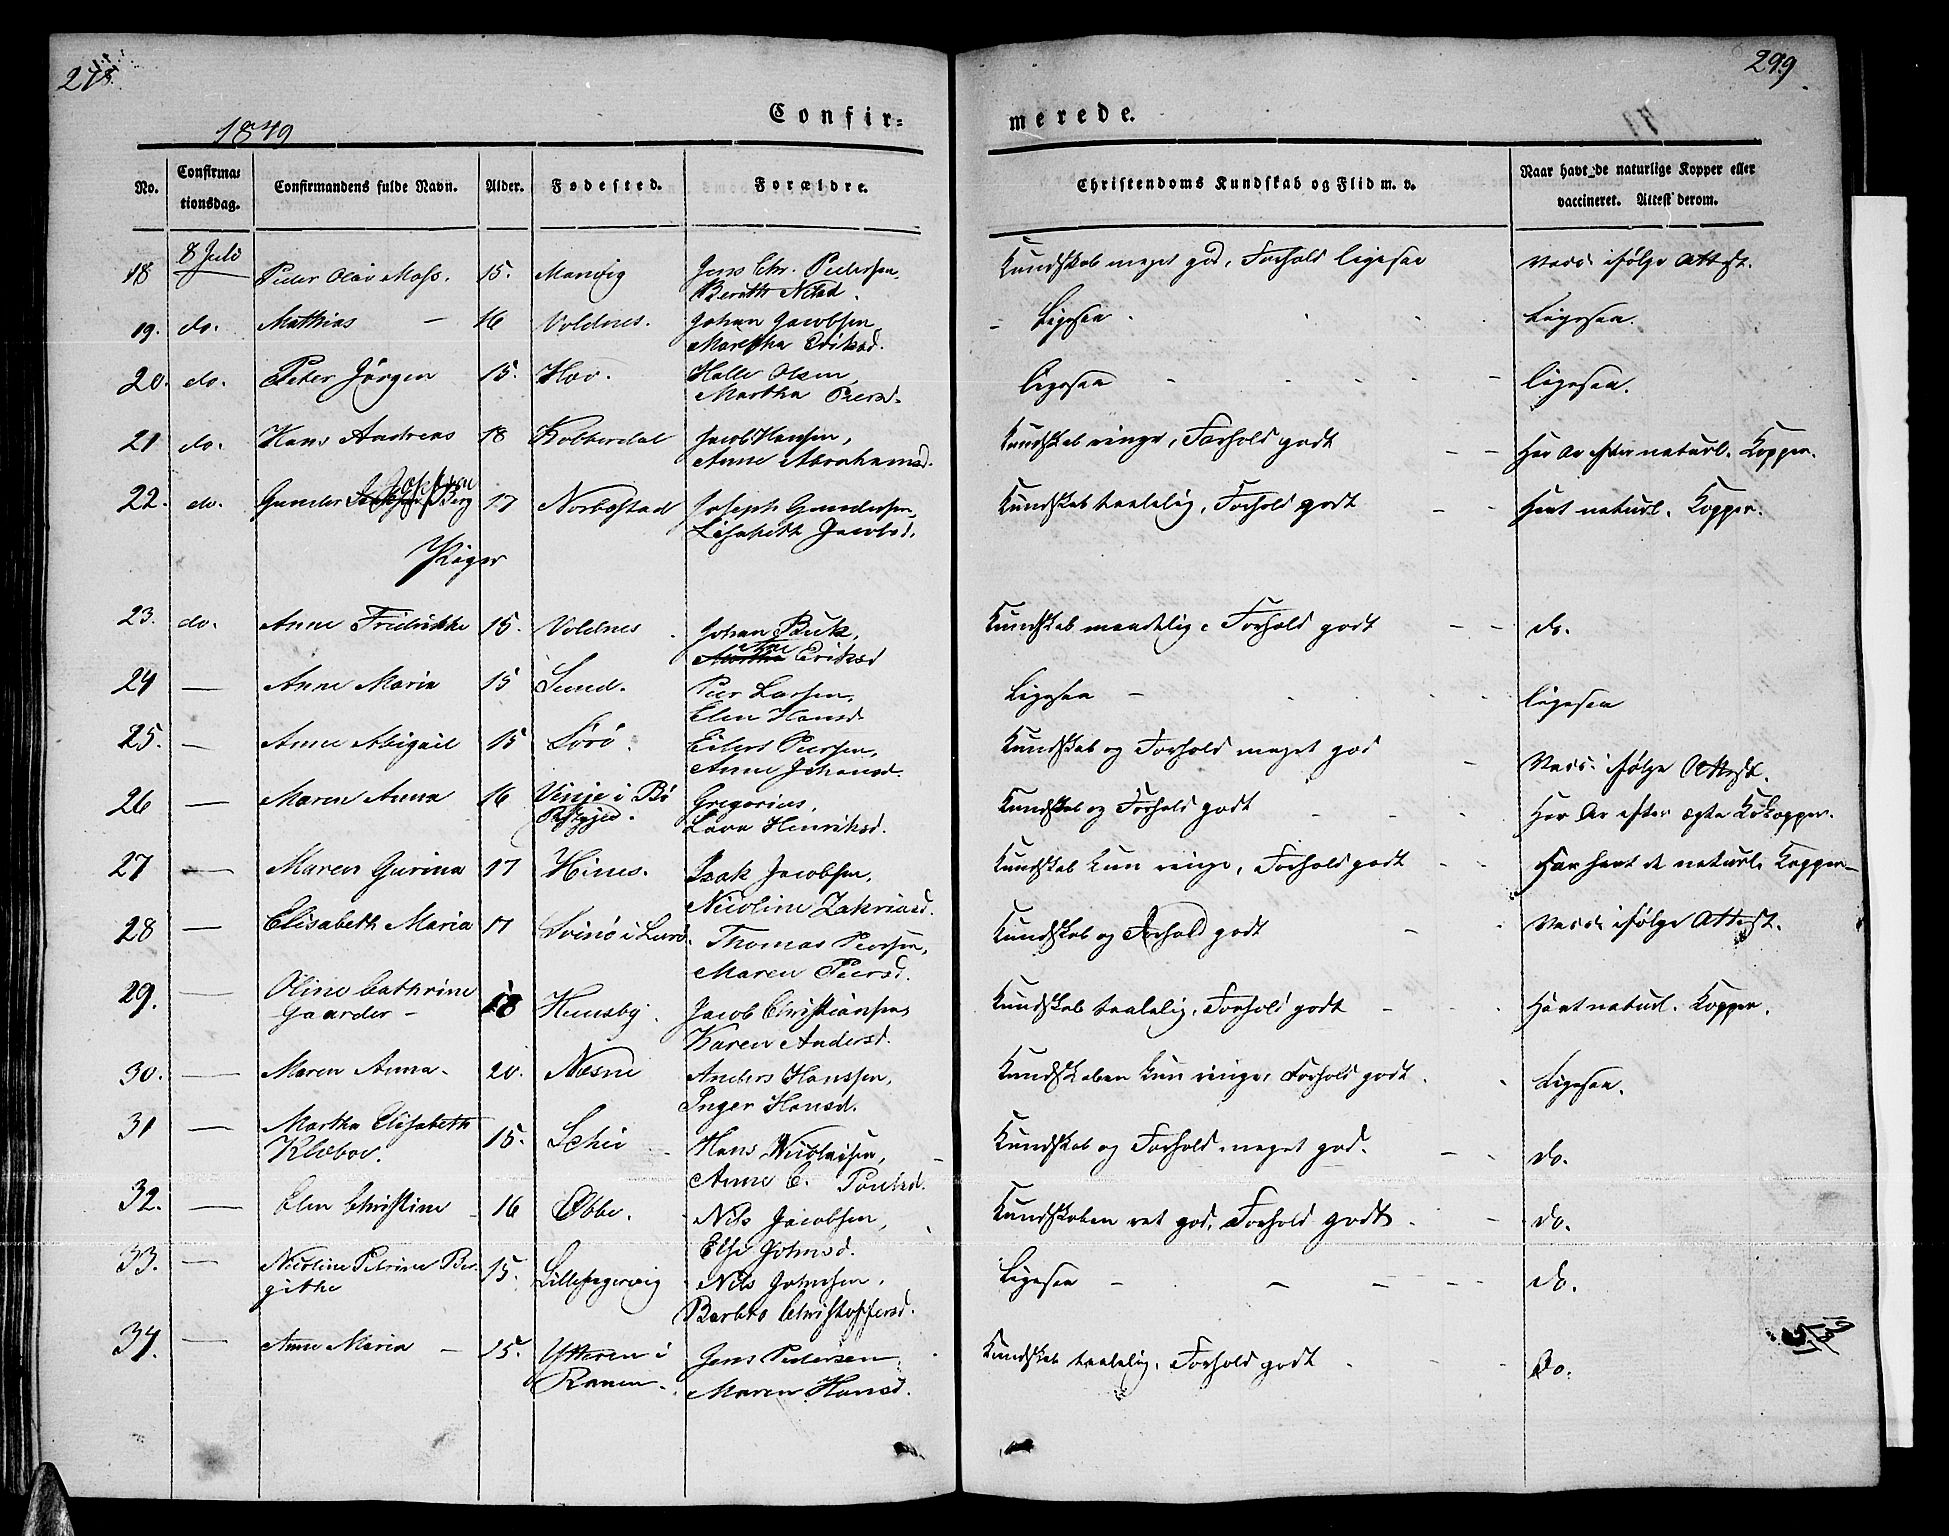 299
1849
Confir=
merede.
No.
Confirma=
tionsdag.
Confirmandens fulde Navn.
Alder.
Fødested.
Forældre.
Christendoms Kundskab og Flid m. v.
Naar havt de naturlige Kopper eller
vaccineret. Attest derom.
18 8 Juli Peder Olai Moss. 15. Manvig Jens Chr. Pedersen, Kundskab meget god, Forhold ligesaa Vacc. ifølge Attest.
Berith Nilsd.
19. do. Matthias — 16 Voldnes. Johan Jacobsen, Ligesaa Ligesaa.
Martha Eriksd.
20. do. Peter Jörgen 15. Hov. Halle Olsen, ligesaa ligesaa.
Martha Peersd.
21 do. Hans Andreas 18 Kobberdal Jacob Hansen, Kundskab ringe, Forhold godt Har Ar efter naturl. Kopper.
Anne Abrahamsd.
Josephsen
22. do. Gunder Berg 17 Norbostad Joseph Gundersen, Kundskab taalelig, Forhold godt Havt naturl. Kopper.
Lisabeth Jacobsd.
Piger
23. do. Anne Fredrikke 15. Voldnes Johan Buk, Kundskab maadelig, Forhold godt do.
Martha Eriksd
24 — Anne Maria 15 Sund. Peer Larsen, Ligesaa — ligesaa
Elen Hansd.
25. — Anne Abigail 15 Sörö. Eilert Peersen, Kundskab og Forhold meget god Vacc. ifølge Attest.
Anne Johansd.
26 — Maren Anna 16 Vinje i Bö Gregorius, Kundskab og Forhold godt Har Ar efter ægte Kokopper.
Præstgjed. Lava Henriksd.
27 — Maren Gurina 17 Hines. Isak Jacobsen, Kundskab kun ringe, Forhold godt Har havt de naturl. Kopper
Nicoline Zakriasd.
28 — Elisabeth Maria 17 Svinö i Lurö. Thomas Peersen, Kundskab og Forhold godt Vacc. ifølge Attest.
Maren Peersd.
29. — Oline Cathrine
Gaarder — 18 Huusby. Jacob Christiansen Kundskab taalelig, Forhold godt Havt naturl. Kopper.
Karen Andersd.
30. — Maren Anna. 20. Næsne Anders Hanssen, Kundskaben kun ringe, Forhold godt. Ligesaa.
Inger Hansd.
31 — Martha Elisabeth
Klæboe. 15. Schei Hans Nicolaisen, Kundskab og Forhold meget god. do.
Anne C. Pontsd.
32. — Elen Christine 16 Øbbe. Nils Jacobsen, Kundskaben ret god, Forhold godt. do.
Else Johnsd.
33. — Nicoline Petrine Ber-
githe 15. Lillefagervig Nils Johnsen, Ligesaa — do.
Barbro Christophersd.
34. — Anne Maria — 15. Ytteren i Jens Pedersen, Kundskab taalelig, Forhold godt Do.
Ranen. Maren Hansd.